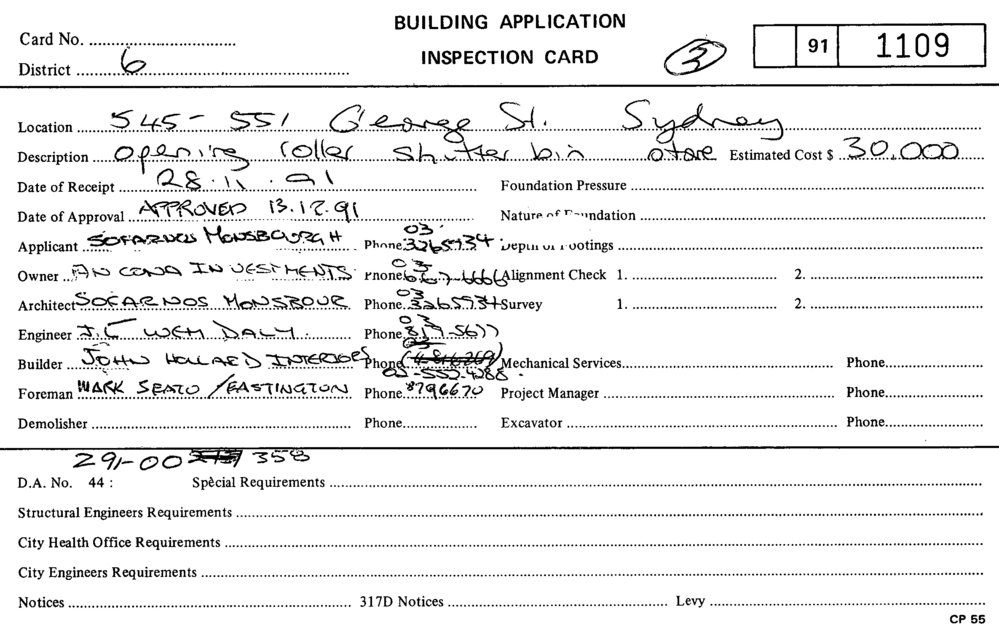 BUILDING APPLICATION
INSPECTION CARD
Card No.
District 6
3
91 1109
Location 545 - 551 George St. Sydney
Description opening roller shutter bin store Estimated Cost $ 30,000
Date of Receipt 28.11.91 Foundation Pressure
Date of Approval APPROVED 13.12.91 Nature of Foundation
Applicant Phone 03 3265934 Depth of Footings
Owner INVESTMENTS Phone 03 Alignment Check 1. 2.
Architect Phone 03 3265934 Survey 1. 2.
Engineer Phone 03
Builder JOHN INTERIORS Phone 02-552-4288 Mechanical Services Phone
Foreman MARK SEATO / EASTINGTON Phone 8796670 Project Manager Phone
Demolisher Phone Excavator Phone
291-00 358
D.A. No. 44 : Special Requirements
Structural Engineers Requirements
City Health Office Requirements
City Engineers Requirements
Notices 317D Notices Levy
CP 55